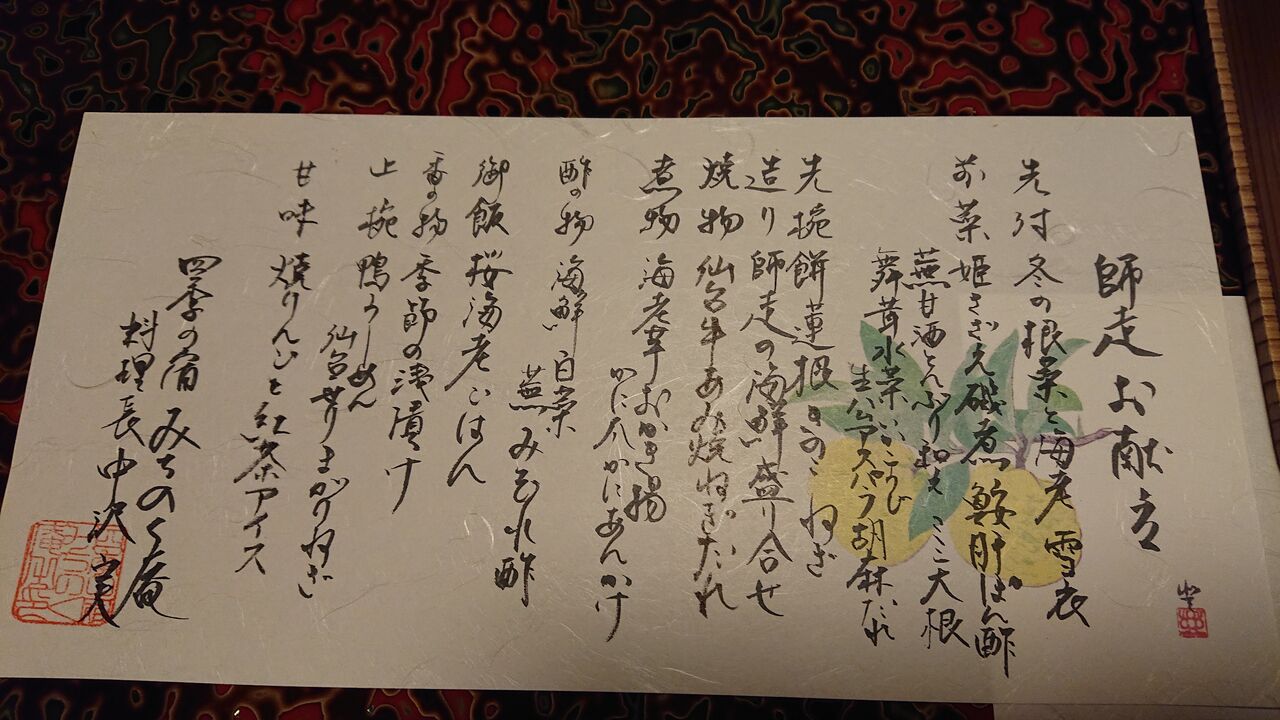 師走お献立
先付 冬の根菜と海老 雪衣
前菜 姫さざえ磯煮 鮟肝ぽん酢
蕪甘酒とんぶり和え ミニ大根
舞茸水菜いこび
生ハムアスパラ胡麻だれ
先椀 餅 蓮根 きのこ ねぎ
造り 師走の海鮮盛り合せ
焼物 仙台牛あみ焼ねぎだれ
煮物 海老芋おかき揚
かに爪かにあんかけ
酢の物 海鮮 白菜
蕪 みぞれ酢
御飯 桜海老ごはん
香の物 季節の漬け
止椀 鴨うーめん
仙台せりまがりねぎ
甘味 焼りんごと紅茶アイス
四季の宿 みちのく庵
料理長 中沢 実